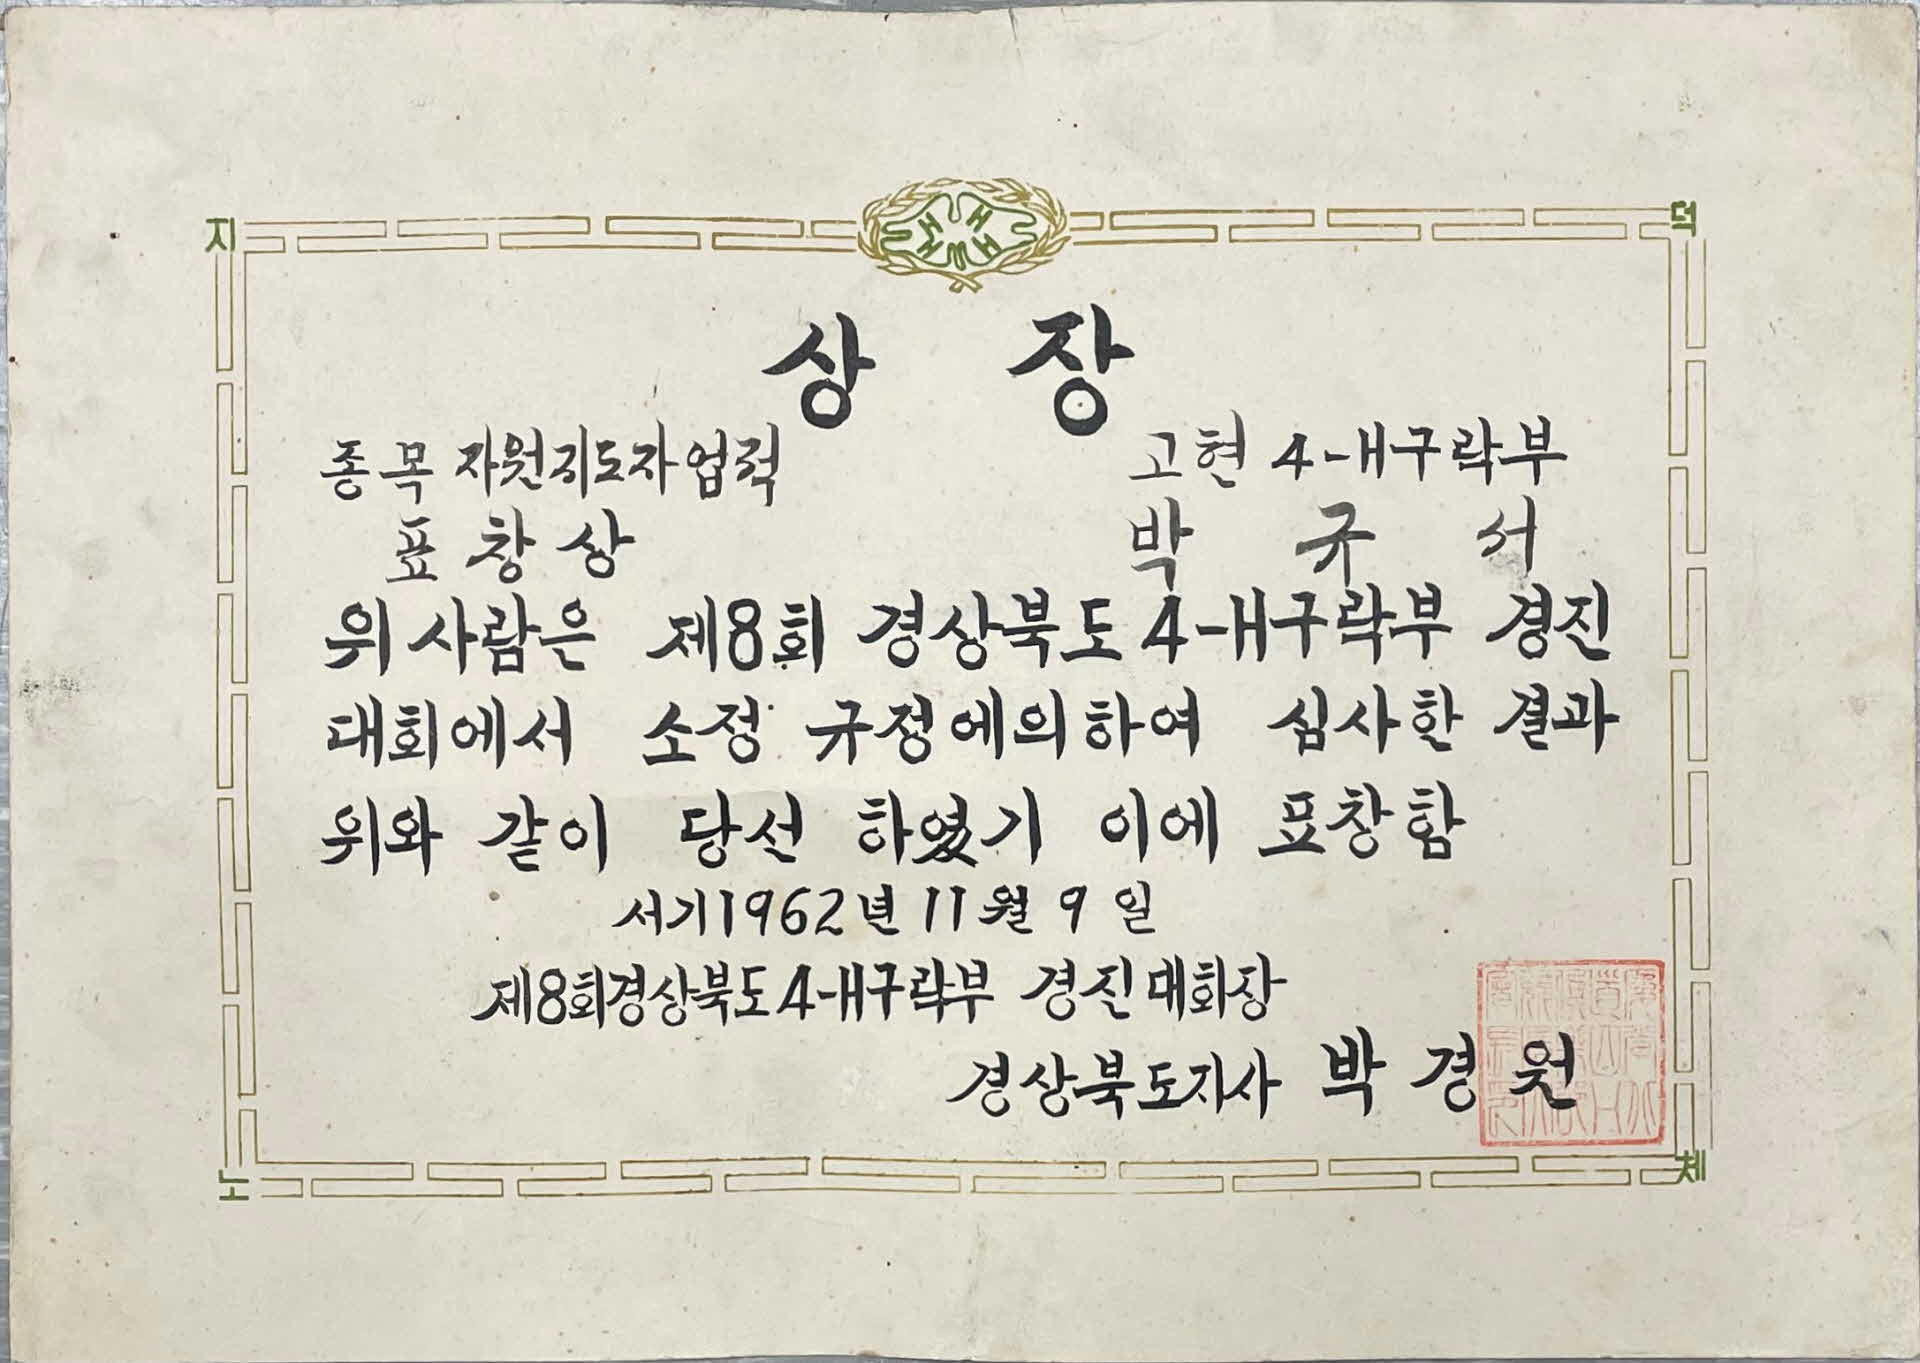 지 덕
상 장
종목 자원지도자업적 고현 4-H구락부
표창상 박규서
위 사람은 제8회 경상북도 4-H구락부 경진
대회에서 소정 규정에의하여 심사한 결과
위와 같이 당선 하였기 이에 표창함
서기1962년 11월 9일
제8회경상북도4-H구락부 경진대회장
경상북도지사 박경원
노 체